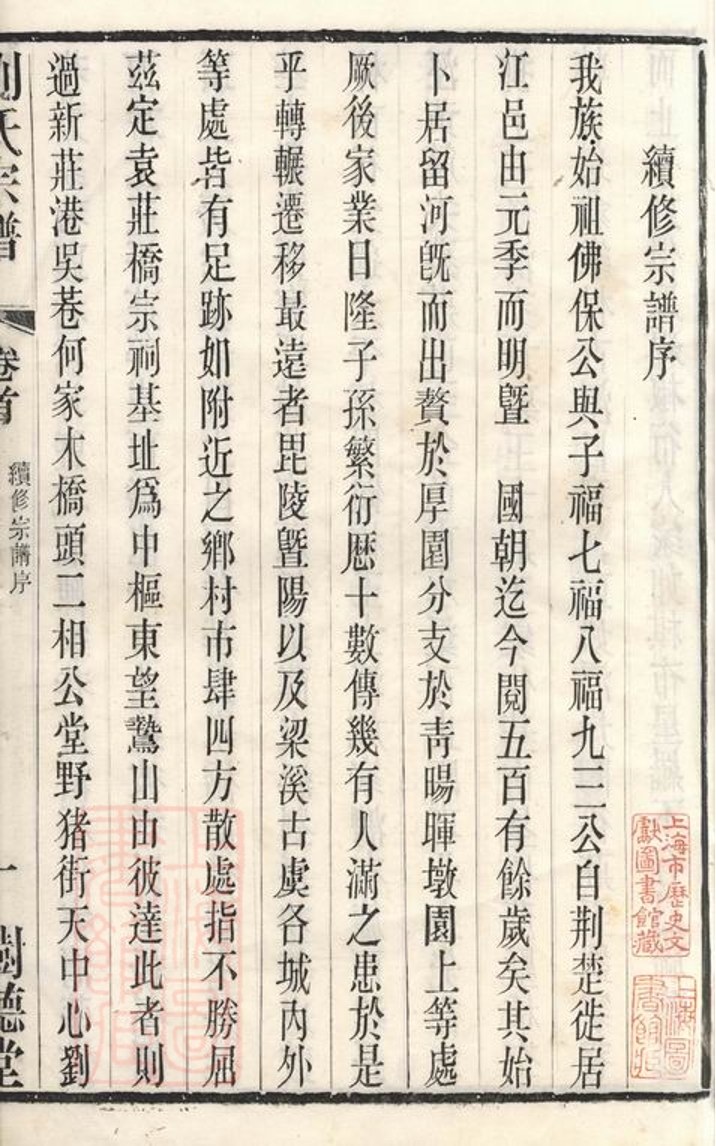 續修宗譜序
我族始祖佛保公與子福七福八福九三公自荆楚徙居
江邑由元季而明曁　國朝迄今閱五百有餘歲矣其始
卜居留河旣而出贅於厚園分支於靑暘暉墩園上等處
厥後家業日隆子孫繁衍歷十數傳幾有人滿之患於是
乎轉輾遷移最遠者毘陵曁陽以及梁溪古虞各城內外
等處皆有足跡如附近之鄉村市肆四方散處指不勝屈
茲定袁莊橋宗祠基址爲中樞東望鷙山由彼達此者則
過新莊港吳巷何家木橋頭二相公堂野猪街天中心劉
劉氏宗譜
卷首
續修宗譜序
一
樹德堂
上海市歷史文
獻圖書館藏
上海圖
書館藏